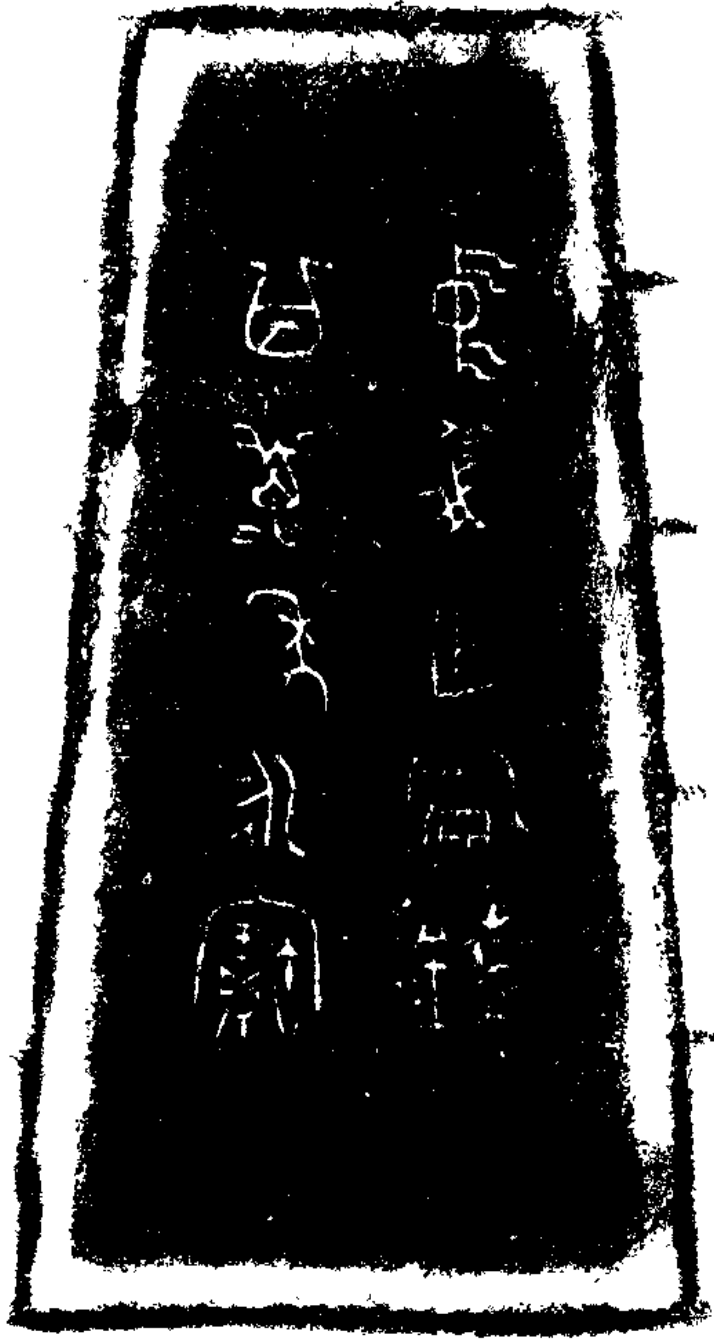 中義乍龢鐘
其萬年永寶